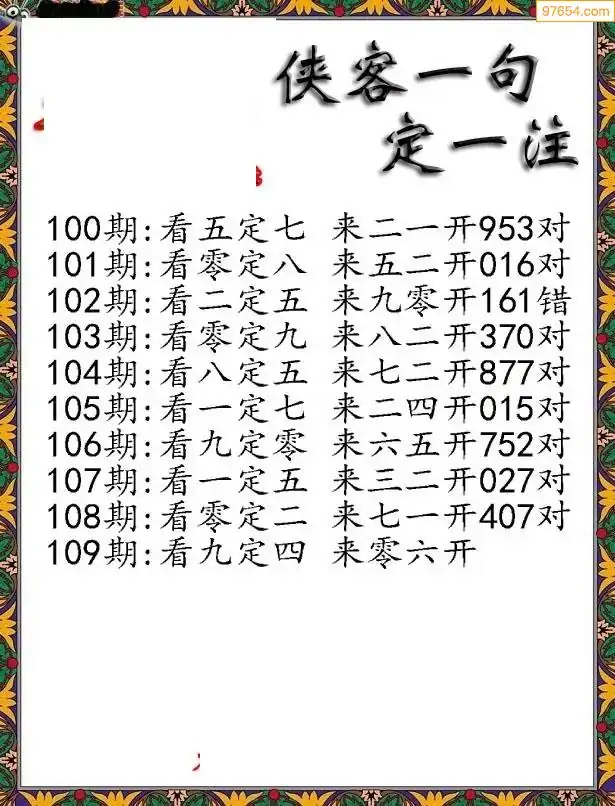 97654.com
侠客一句
定一注
100期:看五定七 来二一开953对
101期:看零定八 来五二开016对
102期:看二定五 来九零开161错
103期:看零定九 来八二开370对
104期:看八定五 来七二开877对
105期:看一定七 来二四开015对
106期:看九定零 来六五开752对
107期:看一定五 来三二开027对
108期:看零定二 来七一开407对
109期:看九定四 来零六开